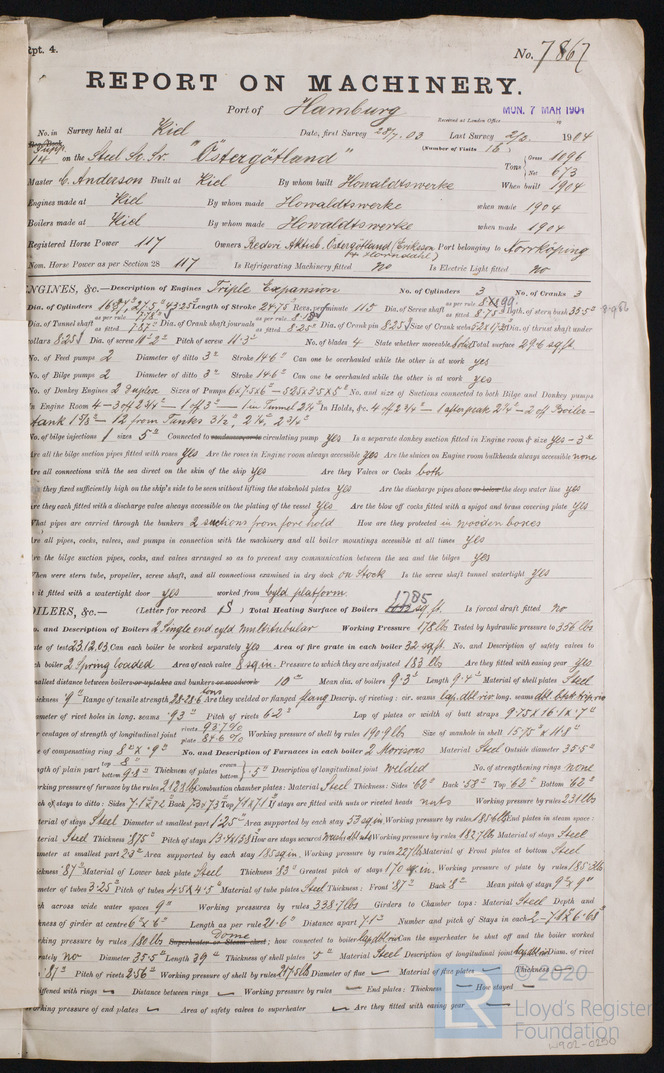 Rpt. 4.
No. 7867
REPORT ON MACHINERY.
Port of Hamburg
Received at London Office MON. 7 MAR 1904
No. in Survey held at Kiel Date, first Survey 28/7.03 Last Survey 2/3. 1904
(Number of Visits 16)
14 on the Steel Sc. Sr. "Östergötland" Tons Gross 1096 Net 673
Master C. Anderson Built at Kiel By whom built Howaldtswerke When built 1904
Engines made at Kiel By whom made Howaldtswerke when made 1904
Boilers made at Kiel By whom made Howaldtswerke when made 1904
Registered Horse Power 117 Owners Rederi Aktieb. Östergötland (Erikson Port belonging to Norrköping
Nom. Horse Power as per Section 28 117 Is Refrigerating Machinery fitted no Is Electric Light fitted no
ENGINES, &c.—Description of Engines Triple Expansion No. of Cylinders 3 No. of Cranks 3
Dia. of Cylinders Length of Stroke 24.75" Revs. per minute 115 Dia. of Screw shaft as per rule as fitted 8.75" Lgth. of stern bush 35.5"
Dia. of Tunnel shaft as per rule as fitted 7.87" Dia. of Crank shaft journals as per rule as fitted 8.25 Dia. of Crank pin 8.25" Size of Crank webs Dia. of thrust shaft under
collars 8.25" Dia. of screw 11'-2" Pitch of screw 11'.3" No. of blades 4 State whether moveable solid Total surface 29.6 sq ft
No. of Feed pumps 2 Diameter of ditto 3" Stroke 14.6" Can one be overhauled while the other is at work yes
No. of Bilge pumps 2 Diameter of ditto 3" Stroke 14.6" Can one be overhauled while the other is at work yes
No. of Donkey Engines 2 Duplex Sizes of Pumps 6x7.5x6" – 5.25x3.5x5" No. and size of Suctions connected to both Bilge and Donkey pumps
In Engine Room 4 – 3 of 2 3/4" – 1 of 3" – 1 in Tunnel 2 3/4 In Holds, &c. 4 of 2 3/4" – 1 after peak 2 3/4" – 2 of Boiler-
tank – 12 from Tanks 3 1/2", 2 1/2", 2 3/4"
No. of bilge injections 1 sizes 5" Connected to condenser, or to circulating pump yes Is a separate donkey suction fitted in Engine room & size yes – 3"
Are all the bilge suction pipes fitted with roses yes Are the roses in Engine room always accessible yes Are the sluices on Engine room bulkheads always accessible none
Are all connections with the sea direct on the skin of the ship yes Are they Valves or Cocks both
they fixed sufficiently high on the ship's side to be seen without lifting the stokehold plates yes Are the discharge pipes above or below the deep water line yes
Are they each fitted with a discharge valve always accessible on the plating of the vessel yes Are the blow off cocks fitted with a spigot and brass covering plate yes
What pipes are carried through the bunkers 2 suctions from fore hold How are they protected in wooden boxes
Are all pipes, cocks, valves, and pumps in connection with the machinery and all boiler mountings accessible at all times yes
Are the bilge suction pipes, cocks, and valves arranged so as to prevent any communication between the sea and the bilges yes
When were stern tube, propeller, screw shaft, and all connections examined in dry dock on Stock Is the screw shaft tunnel watertight yes
is it fitted with a watertight door yes worked from Cyld platform
BOILERS, &c.— (Letter for record S) Total Heating Surface of Boilers 1785 sq. ft. Is forced draft fitted no
No. and Description of Boilers 2 Single end. cyld multitubular Working Pressure 178 lbs Tested by hydraulic pressure to 356 lbs
Date of test 23.12.03 Can each boiler be worked separately yes Area of fire grate in each boiler 32 sq. ft. No. and Description of safety valves to
each boiler 2 Spring loaded Area of each valve 8 sq. in. Pressure to which they are adjusted 183 lbs Are they fitted with easing gear yes
Smallest distance between boilers or uptakes and bunkers or woodwork 10" Mean dia. of boilers 9'.3" Length 9'.4" Material of shell plates Steel
Thickness .9" Range of tensile strength 28-28.6 tons Are they welded or flanged flang Descrip. of riveting: cir. seams lap. dbl. riv long. seams dbl. butt trp. riv
Diameter of rivet holes in long. seams .93" Pitch of rivets 6.2" Lap of plates or width of butt straps
Percentages of strength of longitudinal joint rivets 93.7% plate 84.6% Working pressure of shell by rules 190.9 lb Size of manhole in shell 15.75" x 11.8"
Size of compensating ring 8" x .9" No. and Description of Furnaces in each boiler 2 Morisons Material Steel Outside diameter 35.5"
Length of plain part top 8" bottom 9.8" Thickness of plates crown bottom .5" Description of longitudinal joint welded No. of strengthening rings none
Working pressure of furnace by the rules 212.8 lb Combustion chamber plates: Material Steel Thickness: Sides .62" Back .58" Top .62" Bottom .62"
Pitch of stays to ditto: Sides 7.1x7.2 Back 7.3x7.3" Top 7.1x7.1 If stays are fitted with nuts or riveted heads nuts Working pressure by rules 231 lbs
Material of stays Steel Diameter at smallest part 1.25" Area supported by each stay 53 sq. in Working pressure by rules 185.6 lb End plates in steam space:
Material Steel Thickness .875" Pitch of stays 13.4x13.8 How are stays secured Working pressure by rules 182.7 lb Material of stays Steel
Diameter at smallest part 2.3" Area supported by each stay 185 sq in Working pressure by rules 227 lb Material of Front plates at bottom Steel
Thickness .87" Material of Lower back plate Steel Thickness .83" Greatest pitch of stays 170 sq. in. Working pressure of plate by rules 185.3 lb
Diameter of tubes 3.25" Pitch of tubes 4.5x4.5" Material of tube plates Steel Thickness: Front .87" Back .8" Mean pitch of stays 9" x 9"
Pitch across wide water spaces 9" Working pressures by rules 338.7 lbs Girders to Chamber tops: Material Steel Depth and
thickness of girder at centre 6" x 6" Length as per rule 21.6" Distance apart 7.1" Number and pitch of Stays in each
Working pressure by rules 180 lbs Superheater or Steam chest; Dome how connected to boiler lap. dbl. riv Can the superheater be shut off and the boiler worked
separately no Diameter 35.5" Length 39" Thickness of shell plates .5" Material Steel Description of longitudinal joint lap dbl riv Diam. of rivet
.87" Pitch of rivets 3.56" Working pressure of shell by rules 217.5 lb Diameter of flue Material of flue plates Thickness
Stiffened with rings Distance between rings Working pressure by rules End plates: Thickness How stayed
Working pressure of end plates Area of safety valves to superheater Are they fitted with easing gear
© 2020
LR
Lloyd's Register
Foundation
W902-0250